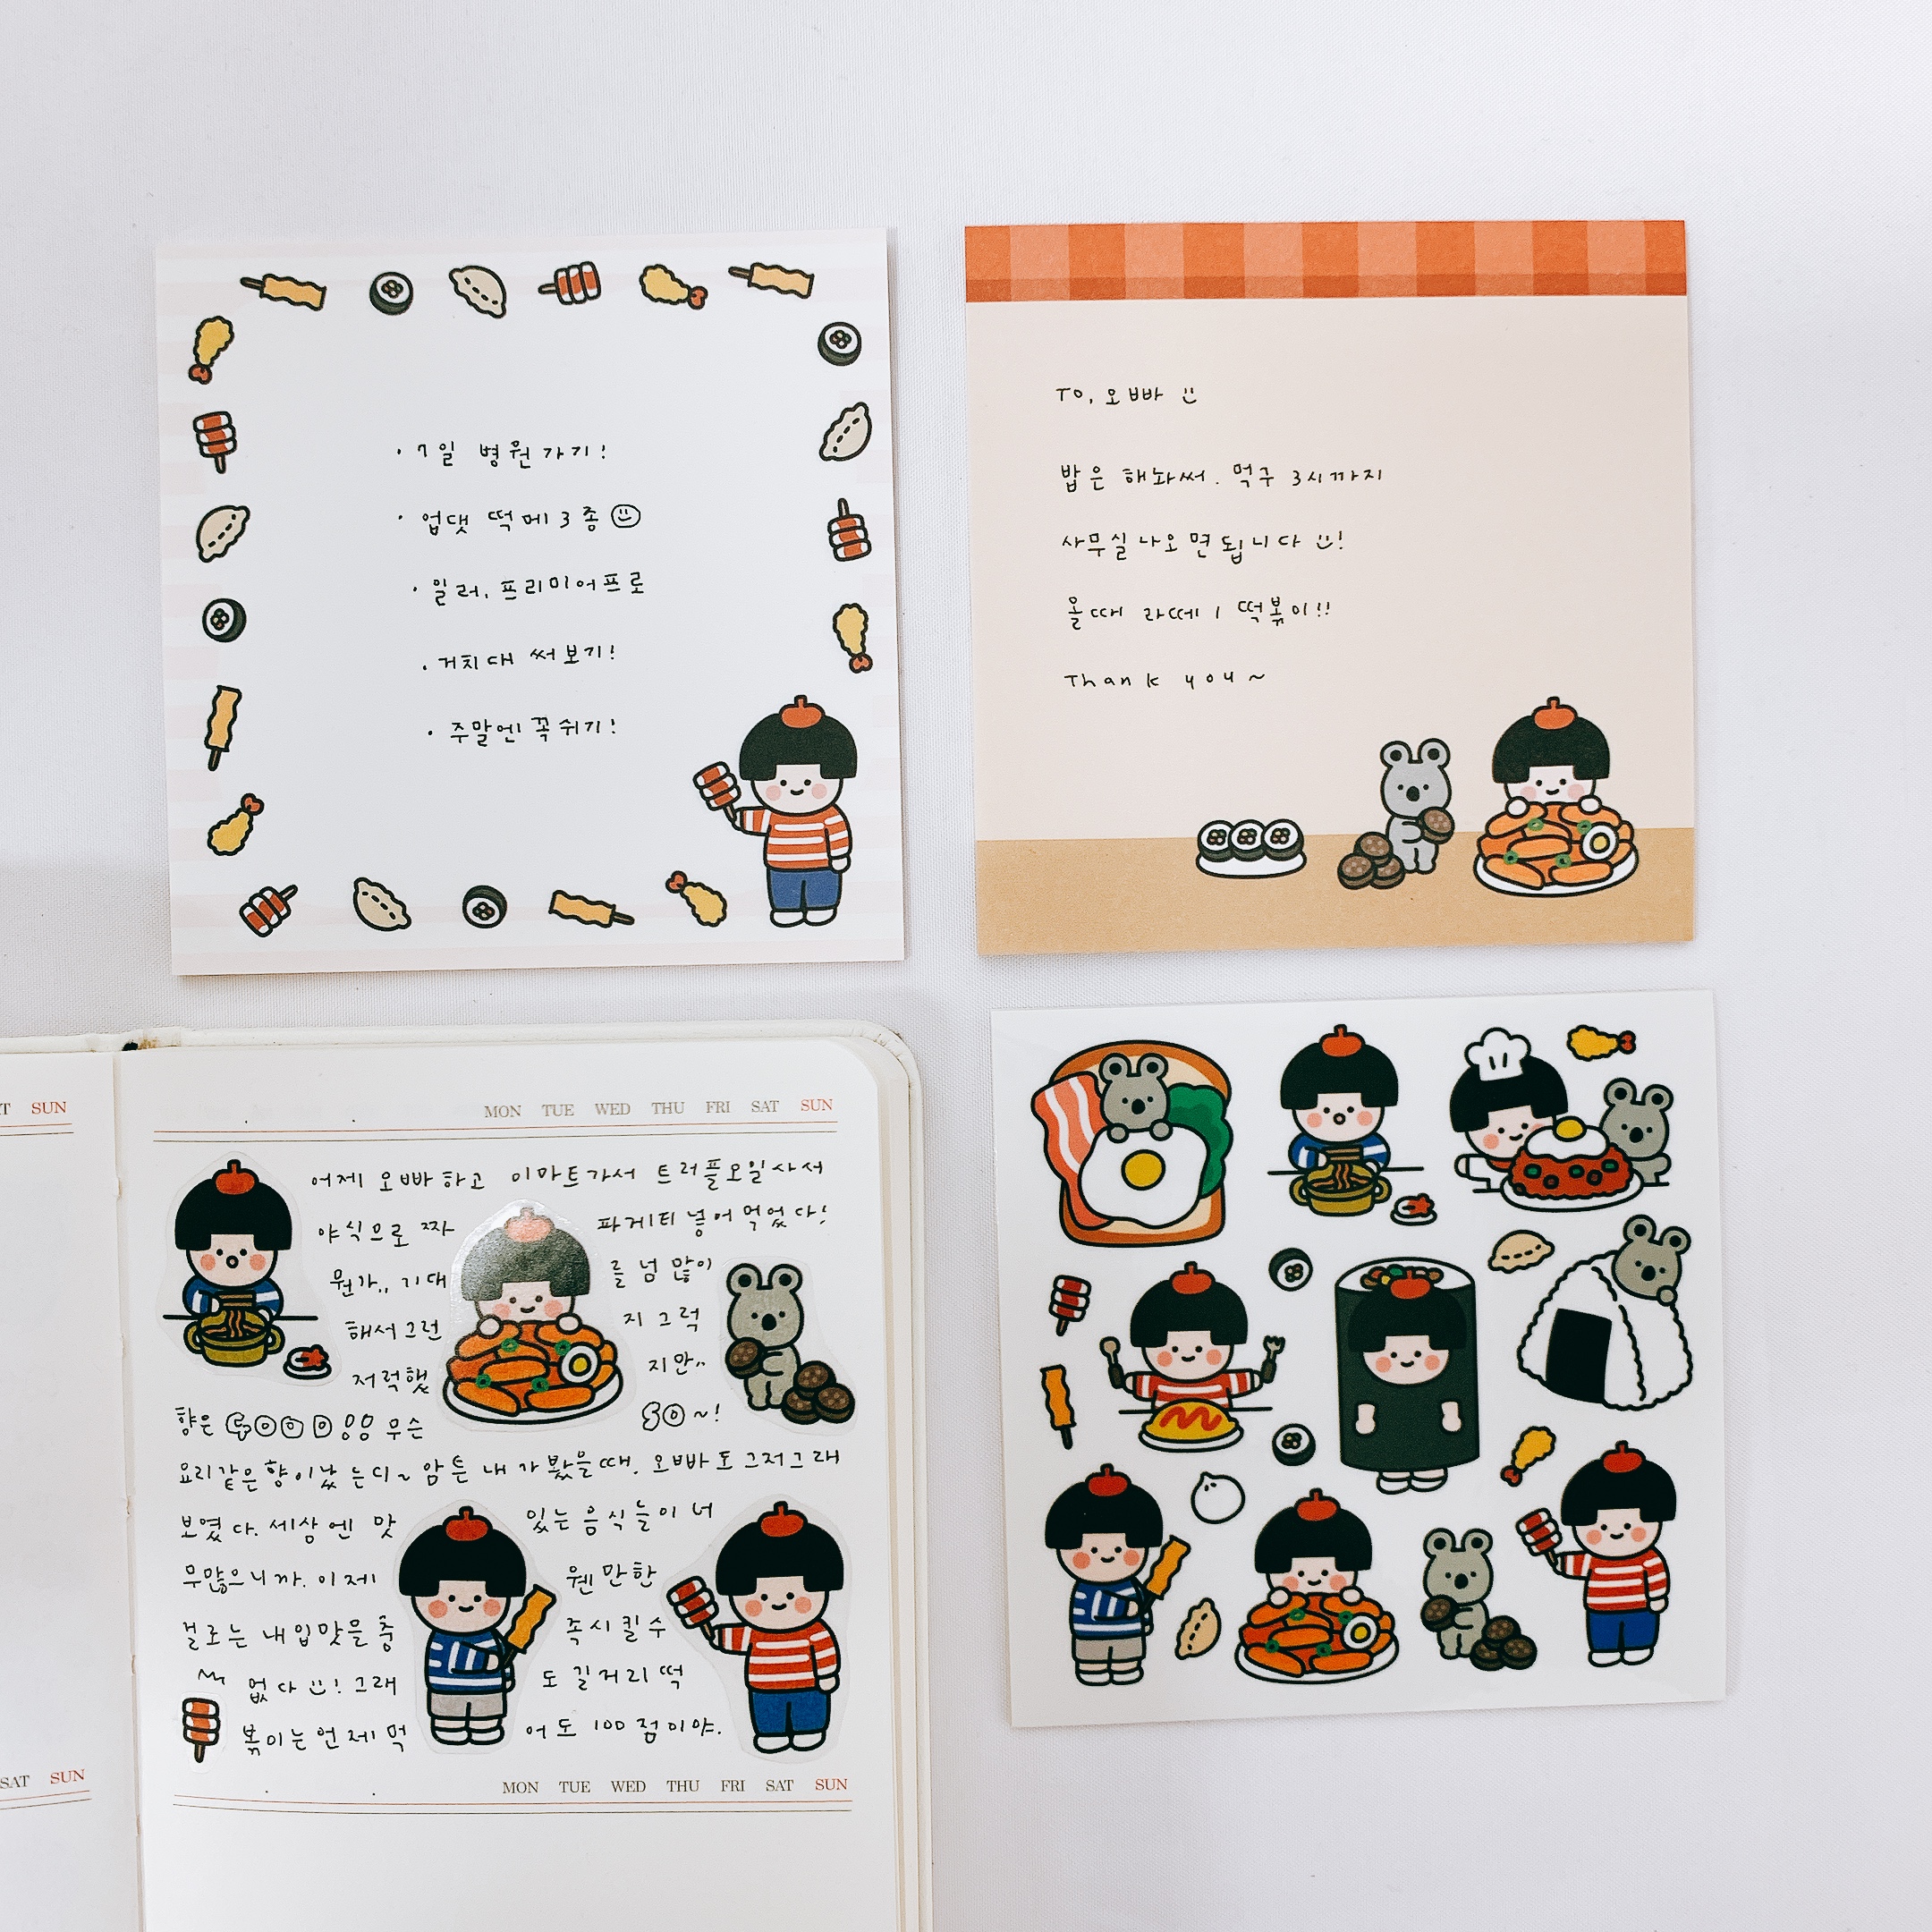 · 7일 병원가기!
· 업댓 떡메 3종
· 일러, 프리미어프로
· 거치대 써보기!
· 주말엔 꼭 쉬기!
TO, 오빠
밥은 해놔써. 먹구 3시까지
사무실 나오면 됩니다 !
올때 라떼 1 떡볶이!!
Thank you~
T SUN
MON TUE WED THU FRI SAT SUN
어제 오빠하고 이마트가서 트러플오일사서
야식으로 짜 파게티 넣어 먹었다!
뭔가.. 기대 를 넘 많이
해서 그런 지 그럭
저럭했 지만..
향은 GOOD 무슨
요리같은 향이났는디~ 암튼 내가 봤을때, 오빠도 그저그래
보였다. 세상엔 맛 있는 음식들이 너
무많으니까. 이제 웬만한
걸로는 내입맛을 충 족시킬수
없다 ! 그래 도 길거리 떡
볶이는 언제먹 어도 100점이야.
SAT SUN
MON TUE WED THU FRI SAT SUN